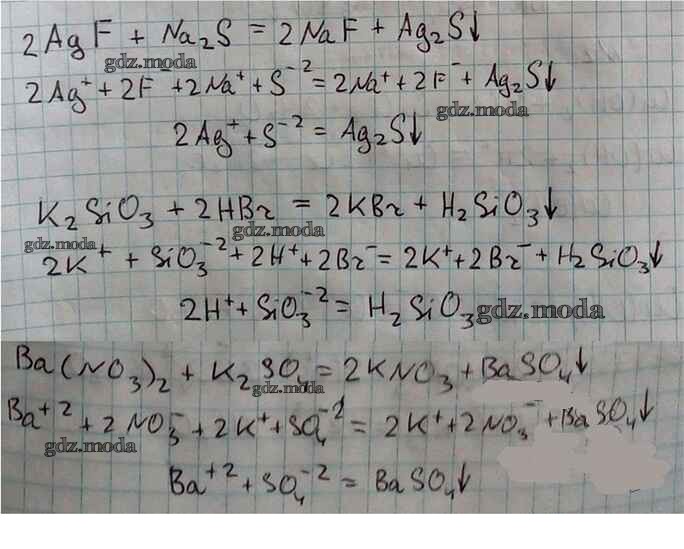 2AgF + Na₂S = 2NaF + Ag₂S↓
gdz.moda
2Ag⁺ + 2F⁻ + 2Na⁺ + S⁻² = 2Na⁺ + 2F⁻ + Ag₂S↓
gdz.moda
2Ag⁺ + S⁻² = Ag₂S↓
K₂SiO₃ + 2HBr = 2KBr + H₂SiO₃↓
gdz.moda
gdz.moda
2K⁺ + SiO₃⁻² + 2H⁺ + 2Br⁻ = 2K⁺ + 2Br⁻ + H₂SiO₃↓
2H⁺ + SiO₃⁻² = H₂SiO₃ gdz.moda
Ba(NO₃)₂ + K₂SO₄ = 2KNO₃ + BaSO₄↓
gdz.moda
Ba⁺² + 2NO₃⁻ + 2K⁺ + SO₄⁻² = 2K⁺ + 2NO₃⁻ + BaSO₄↓
gdz.moda
Ba⁺² + SO₄⁻² = BaSO₄↓